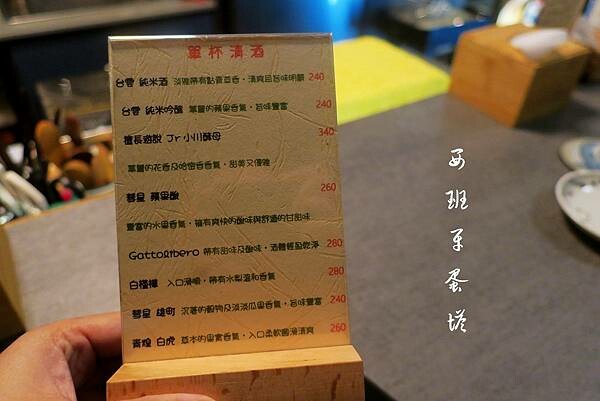 單杯清酒
台雲 純米酒 淡雅帶有點青草香，清爽且旨味明顯 240
台雲 純米吟釀 華麗的蘋果香氣，旨味豐富 240
擅長遊說 Jr 小川酵母 340
華麗的花香及哈密香香氣，甜美又優雅
彗星 蘋果酸 260
豐富的水果香氣，擁有爽快的酸味與舒適的甘甜味
Gattolibero 帶有甜味及酸味，酒體輕盈乾淨 280
白樺 入口滑順，帶有水梨溫和香氣 280
彗星 雄町 沉著的穀物及淡淡瓜果香氣，旨味豐富 240
青煌 白虎 草本的果實香氣，入口柔軟圓滑清爽 260
西班牙蛋塔